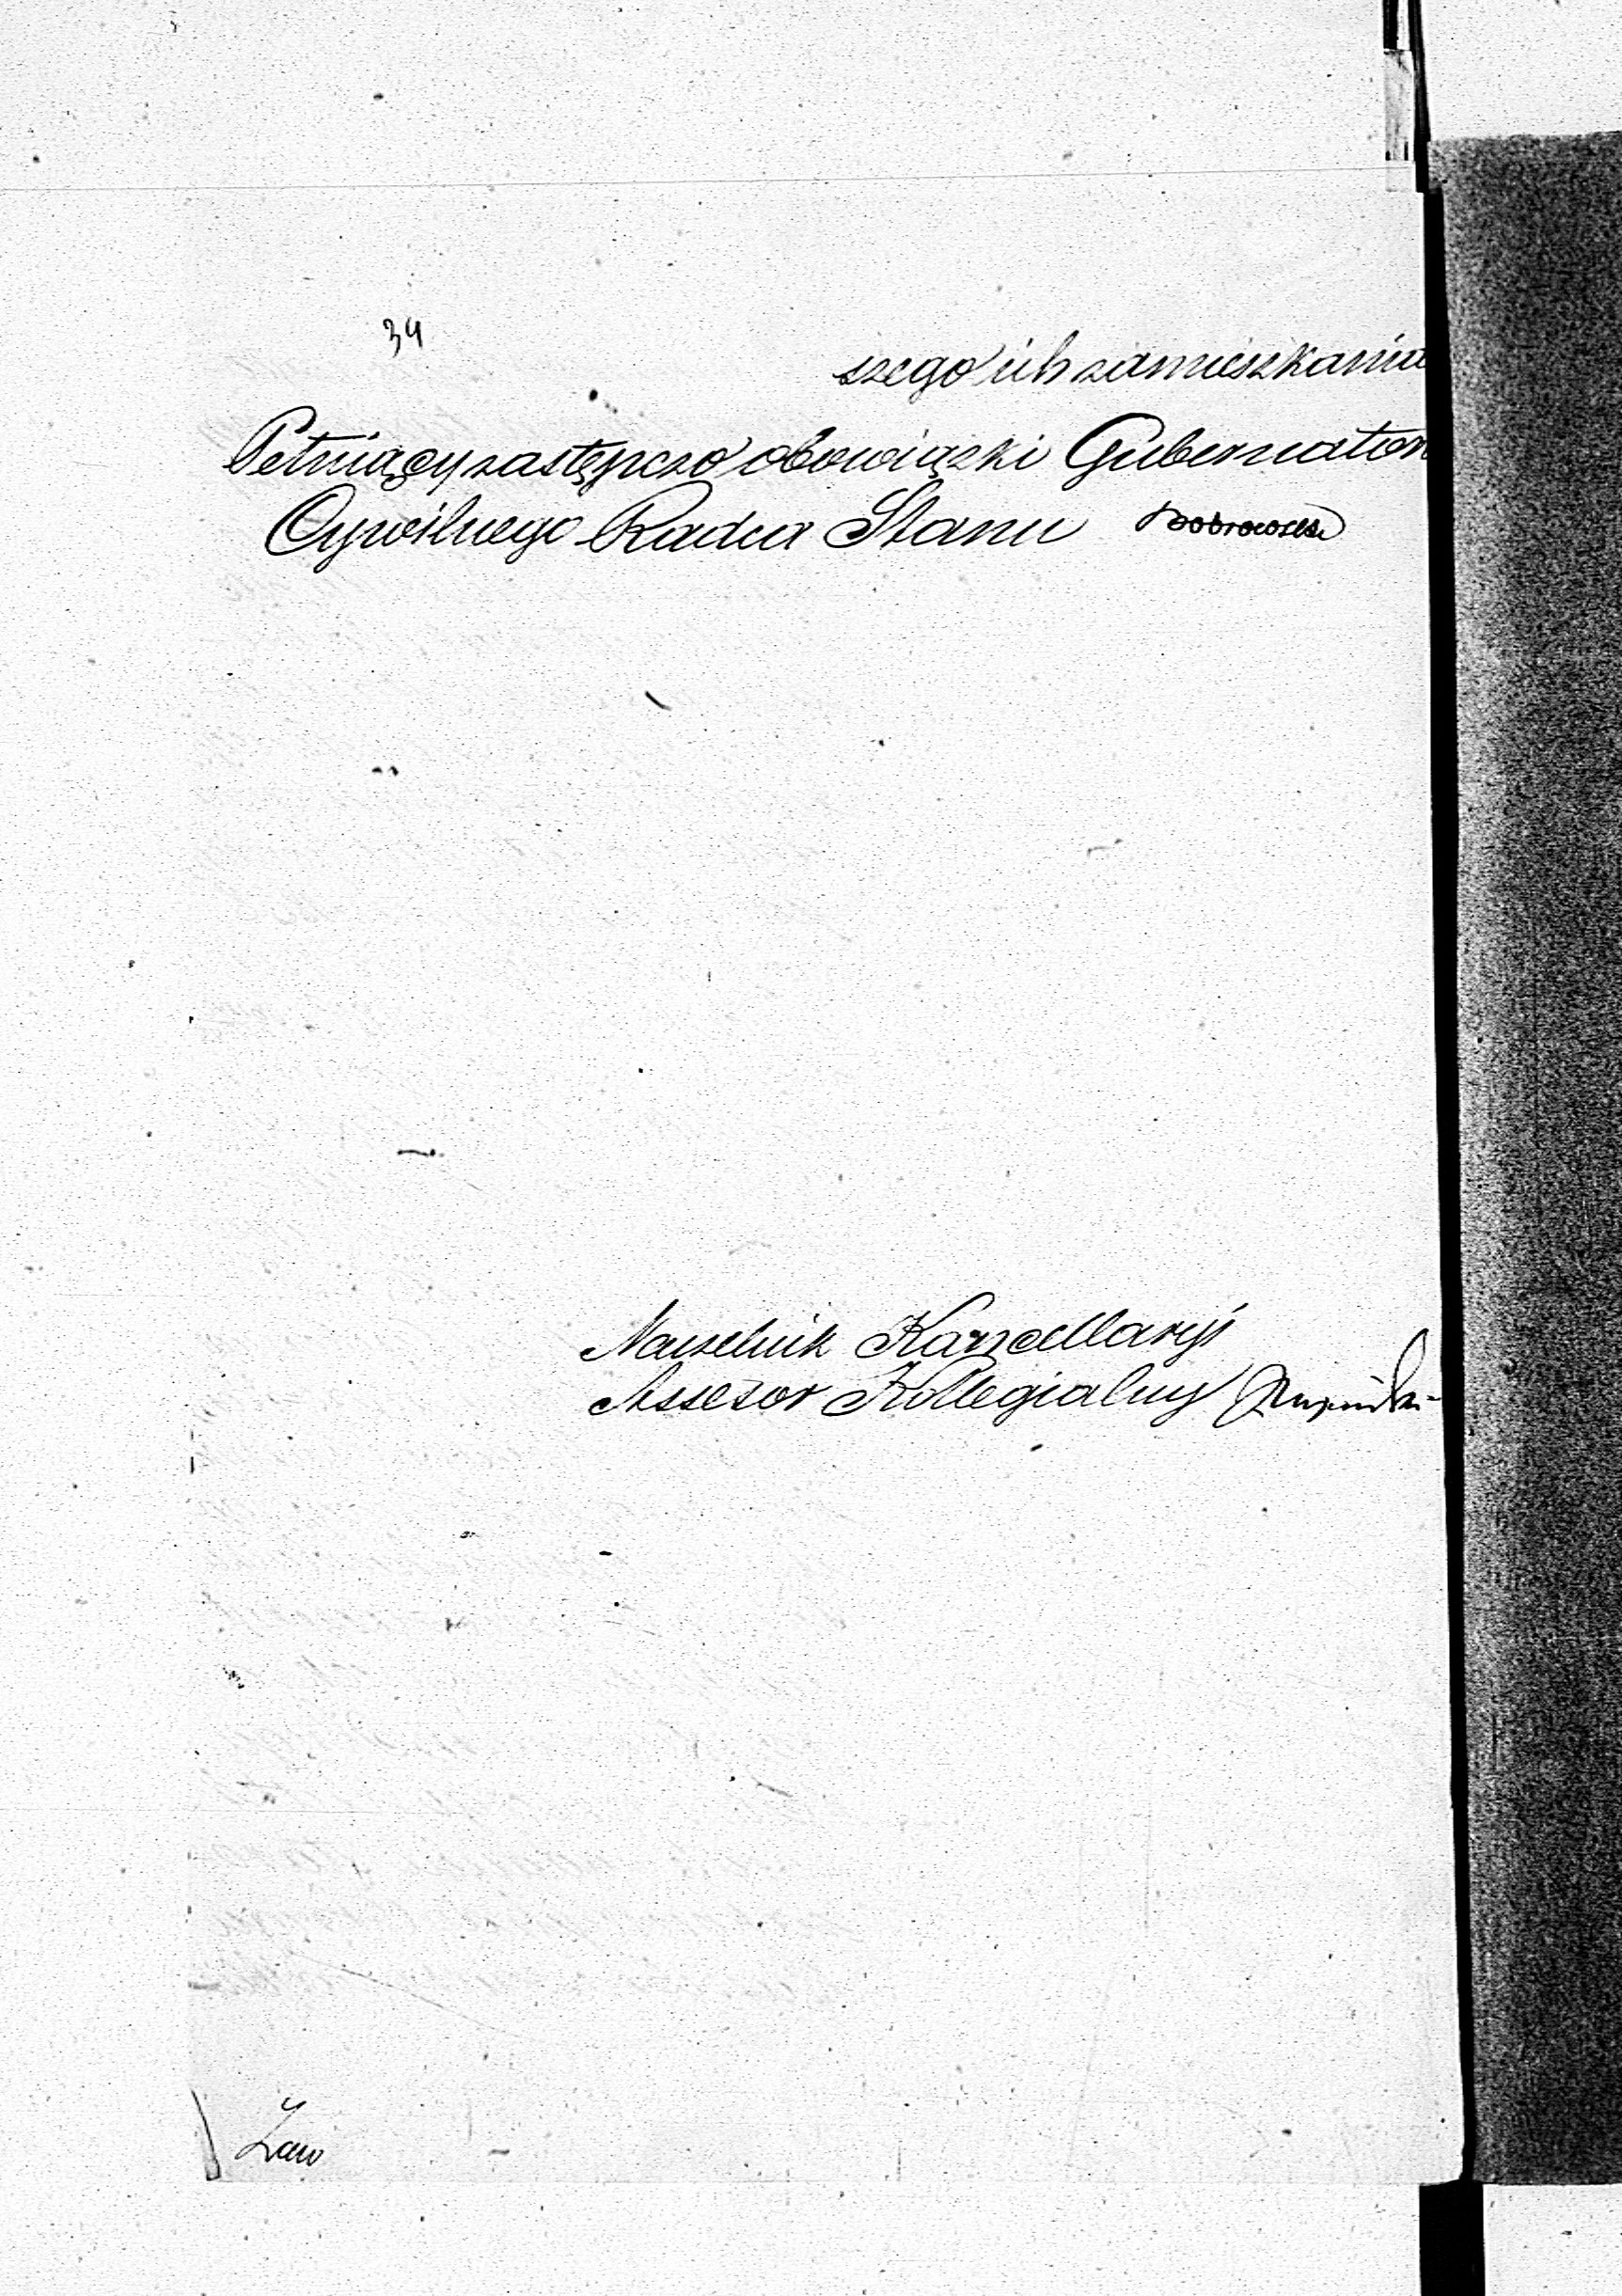 34
szego ich zamieszkania
Pełniący zastępczo obowiązki Gubernator
Cywilnego Radca Stanu
Naczelnik Kancellaryi
Assesor Kollegialny